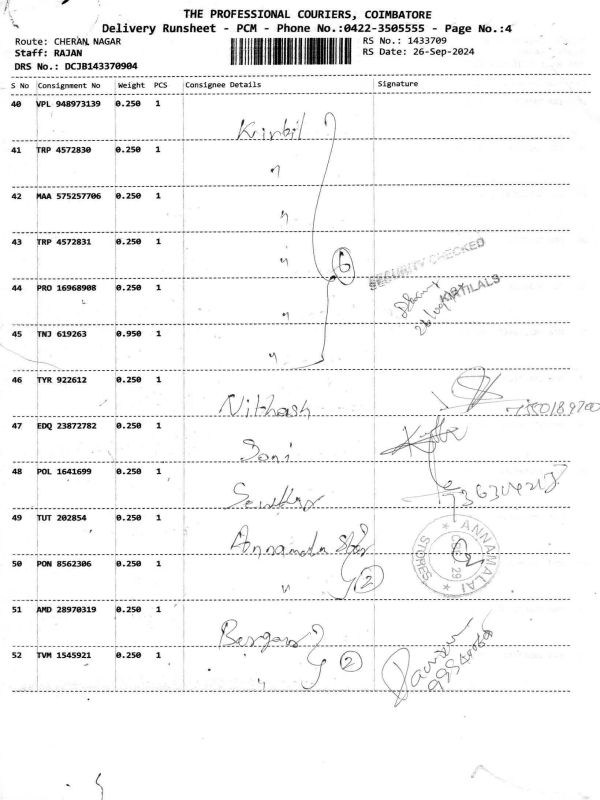 THE PROFESSIONAL COURIERS, COIMBATORE
Delivery Runsheet - PCM - Phone No.:0422-3505555 - Page No.:4
Route: CHERAN NAGAR
RS No.: 1433709
Staff: RAJAN
RS Date: 26-Sep-2024
DRS No.: DCJB143370904
S No Consignment No Weight PCS Consignee Details Signature
40 VPL 948973139 0.250 1
41 TRP 4572830 0.250 1
"
42 MAA 575257706 0.250 1
"
43 TRP 4572831 0.250 1
" 6
SECURITY CHECKED
44 PRO 16968908 0.250 1
" KIRTILALS
45 TNJ 619263 0.950 1
"
46 TYR 922612 0.250 1
Nithash
47 EDQ 23872782 0.250 1
Soni
48 POL 1641699 0.250 1
49 TUT 202854 0.250 1
Annamalai
ANNAMALAI STORES
50 PON 8562306 0.250 1
" 2
51 AMD 28970319 0.250 1
52 TVM 1545921 0.250 1
" 2